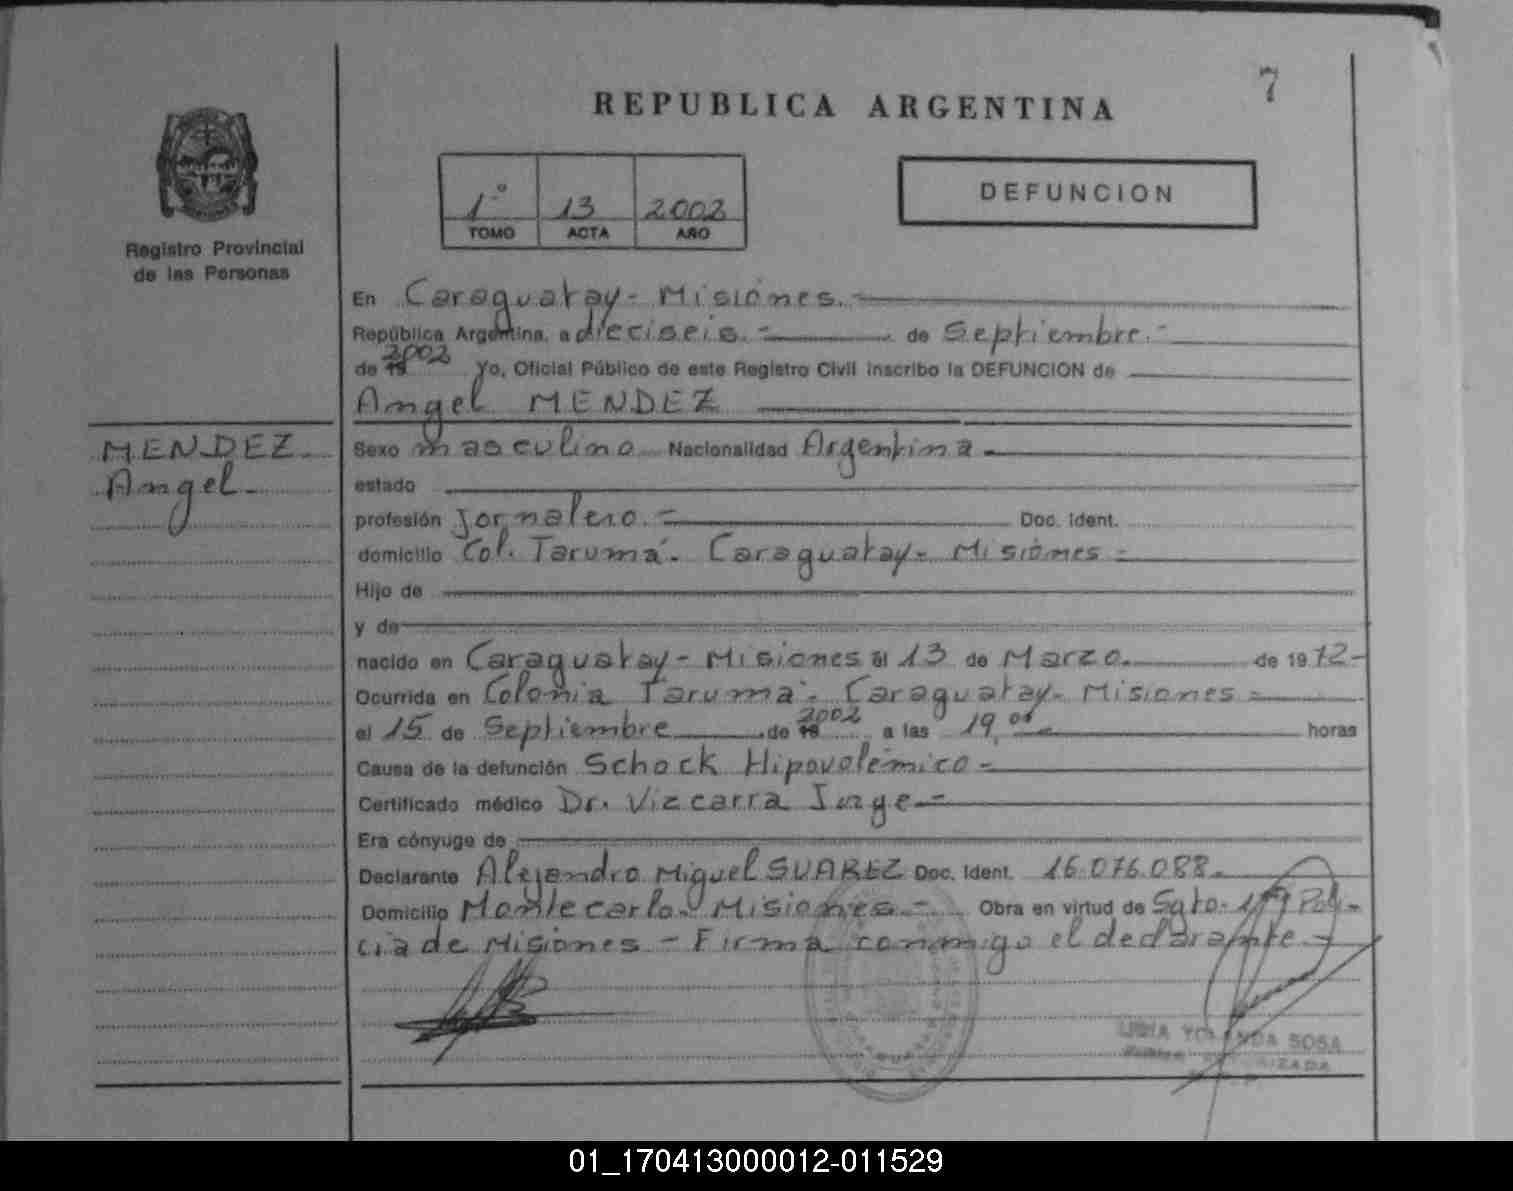 7
REPUBLICA ARGENTINA
1º 13 2002
TOMO ACTA AÑO
DEFUNCION
Registro Provincial
de las Personas
En Caraguatay - Misiones.-
República Argentina, a dieciseis.- de Septiembre.-
de 19 2002 Yo, Oficial Público de este Registro Civil inscribo la DEFUNCION de
Angel MENDEZ
MENDEZ
Angel.-
Sexo masculino Nacionalidad Argentina
estado
profesión Jornalero.- Doc. Ident.
domicilio Col. Taruma. Caraguatay - Misiones -
Hijo de
y de
nacido en Caraguatay - Misiones el 13 de Marzo. de 1972-
Ocurrida en Colonia Taruma. Caraguatay - Misiones -
el 15 de Septiembre de 19 2002 a las 19,00 horas
Causa de la defunción Schock Hipovolémico -
Certificado médico Dr. Vizcarra Jorge -
Era cónyuge de
Declarante Alejandro Miguel SUAREZ Doc. Ident. 16.076.088.
Domicilio Montecarlo. Misiones.- Obra en virtud de Sgto. Poli-
cia de Misiones - Firma conmigo el declarante -
YOLANDA SOSA
01_170413000012-011529